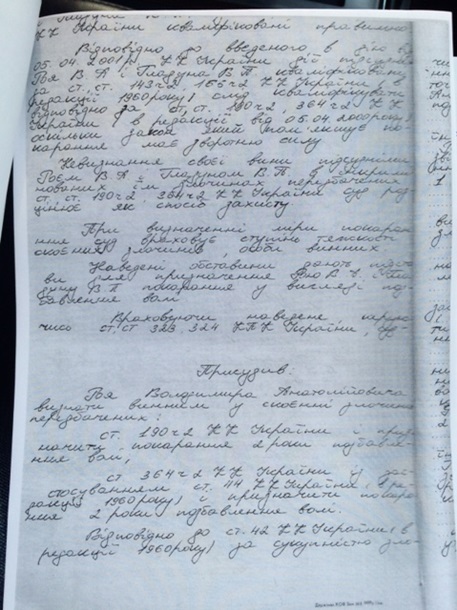 КК України кваліфіковані правильно
Відповідно до введеного в дію від
05.04.2001р. КК України дії підсудних
Гоя В А і Гладуна В П кваліфіковані
за ст.ст. 143 ч 2, 165 ч 2 КК України, в
редакції 1960 року, слід кваліфікувати
відповідно за ст.ст. 190 ч 2, 364 ч 2 КК
України, в редакції від 05.04.2000 року,
оскільки закон який пом'якшує по-
карання має зворотню силу
Невизнання своєї вини підсудніми
Гоєм В А і Гладуном В П в
їм злочинах передбачених
ст.ст. 190 ч 2, 364 ч 2 КК України суд роз
цінює як спосіб захисту
При визначенні міри покаран
ня суд враховує ступінь тяжкості
скоєних злочинів, особи винних
Наведені обставини дають підста
ви для призначення Гою В А, Гла
дуну В П покарання у вигляді поз
бавлення волі
Враховуючи наведене керую
чись ст.ст 323, 324 КПК України, суд-
Присудив:
Гоя Володимира Анатолійовича
визнати винним у скоєнні злочинів
передбачених:
ст. 190 ч 2 КК України і приз
начити покарання 2 роки позбавле-
ння волі,
ст 364 ч 2 КК України із зас
тосуванням ст. 44 КК України, в ре-
дакції 1960 року, і призначити покара
ння 2 роки позбавлення волі.
Відповідно до ст. 42 КК України, в
редакції 1960 року, за сукупністю зло-